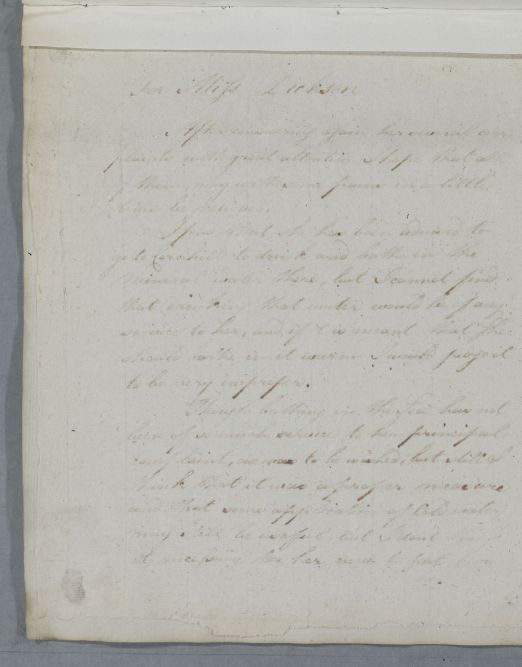 For Miss
After considering again her several com
plaints with great attention I hope that al
of them may with some pains in a little
time be
I find that she has been advised to
go to to drink and bathe in the
mineral water there, but I cannot find
that drinking that water would be of any
service to her, and if it is meant that she
should bathe in it warm I would judge it
to be very improper.
Though bathing in the Sea has not
been of so much service to her principal
complaint, as was to be wished, but still I
think that it was a proper measure
and that some application of Cold water
may still be useful, but I dont
it necessary for her now to